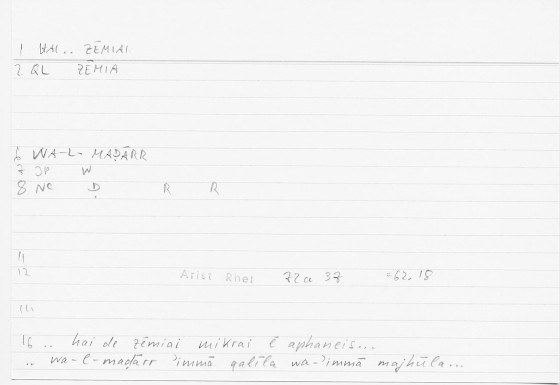 1 HAI .. ZĒMIAI
2 QL ZĒMIA
6 WA-L-MAḌĀRR
7 JP W
8 NC Ḍ R R
11
12 Arist Rhet 72a 37 =62.15
14
16 .. hai de zēmiai mikrai ē aphaneis...
.. wa-l-maḍārr 'immā qalīla wa-'immā majhūla...